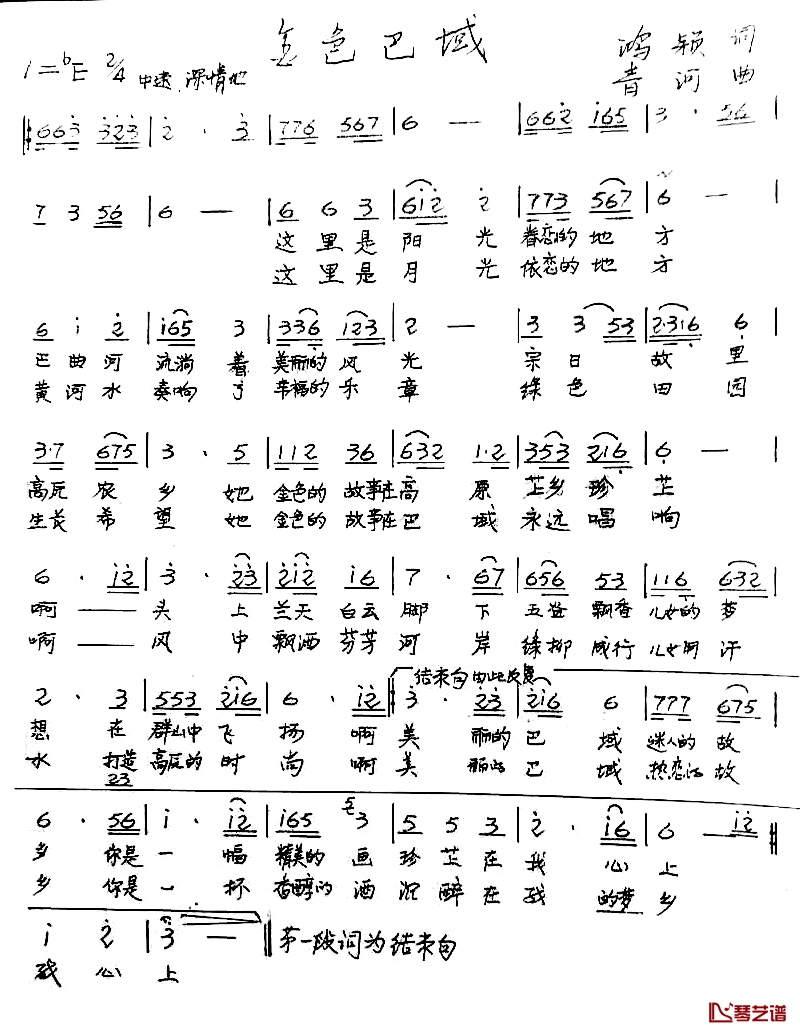 金色巴域
鸿颖 词
1=bE 2/4 中速 深情地
青河 曲
663 323 | 2 · 3 | 776 567 | 6 — | 662 165 | 3 · 56 |
7 3 56 | 6 — | 6 6 3 | 612 2 | 773 567 | 6 — |
这里是阳光眷恋的地方
这里是月光依恋的地方
6 1 2 | 165 3 | 336 123 | 2 — | 3 3 53 | 2·316 6 |
巴曲河流淌着美丽的风光 宗日故里
黄河水奏响了幸福的乐章 绿色田园
3·7 675 | 3 · 5 | 112 36 | 632 1·2 | 353 216 | 6 — |
高瓦农乡她金色的故事在高原芷乡珍芷
生长希望她金色的故事在巴域永远唱响
6 · 12 | 3 · 23 | 212 16 | 7 · 67 | 656 53 | 116 632 |
啊——头上兰天白云脚下五谷飘香儿女的梦
啊——风中飘洒芬芳河岸绿柳成行儿女的汗
结束句由此反复
2 · 3 | 553 216 | 6 · 12 | 3 · 23 | 216 6 | 777 675 |
想在群山中飞扬 啊美丽的巴域迷人的故
水打造高瓦的时尚 啊美丽的巴域热恋的故
23
6 · 56 | 1 · 12 | 165 3 | 5 5 3 | 2 · 16 | 6 — 12 |
乡 你是一幅精美的画珍芷在我心上
乡 你是一杯香醇的酒沉醉在我的梦乡
1 2 | 3 — | 第一段词为结束句
我心上
琴艺谱